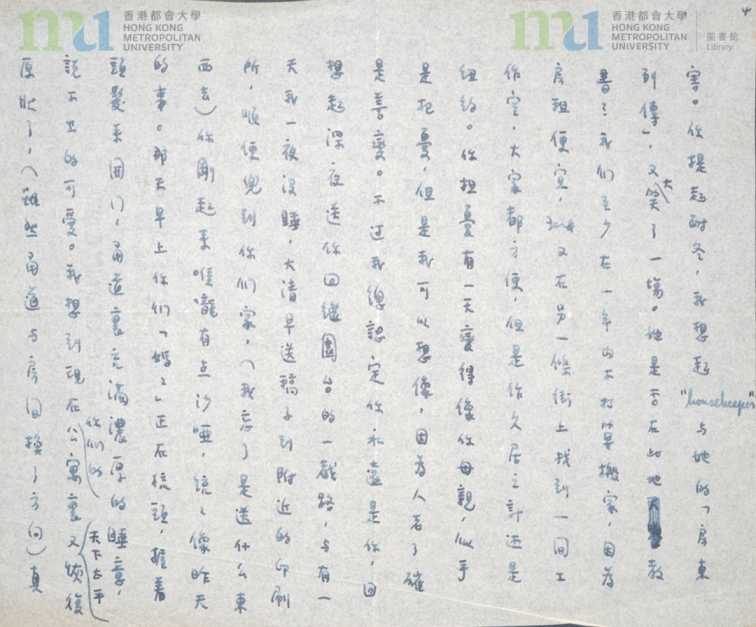 香港都會大學
HONG KONG
METROPOLITAN
UNIVERSITY
香港都會大學
HONG KONG
METROPOLITAN
UNIVERSITY
圖書館
Library
4
害。你提起耐冬，我想起"housekeeper"与她的「房東
列傳」，又大笑了一場。她是否在此地教
書？我們至少在一年内不打算搬家，因為
房租便宜，又在另一條街上找到一间工
作室，大家都方便，但是作久居之計还是
紐約。你担憂有一天變得像你母親，似乎
是杞憂，但是我可以想像，因為人老了確
是善變。不过我總認定你永遠是你，回
想起深夜送你回繼園台的一截路，与有一
天我一夜没睡，大清早送稿子到附近的印刷
所，順便兜到你们家，（我忘了是送什么東
西去）你剛起來喉嚨有点沙啞，統々像昨天
的事。那天早上你们「媽々」正在梳頭，握着
頭髮來開门，甬道裏充滿濃厚的睡意，
說不出的可愛。我想到現在你们的公寓裏又天下太平恢復
原狀了，（雖然甬道与房间換了方向）真